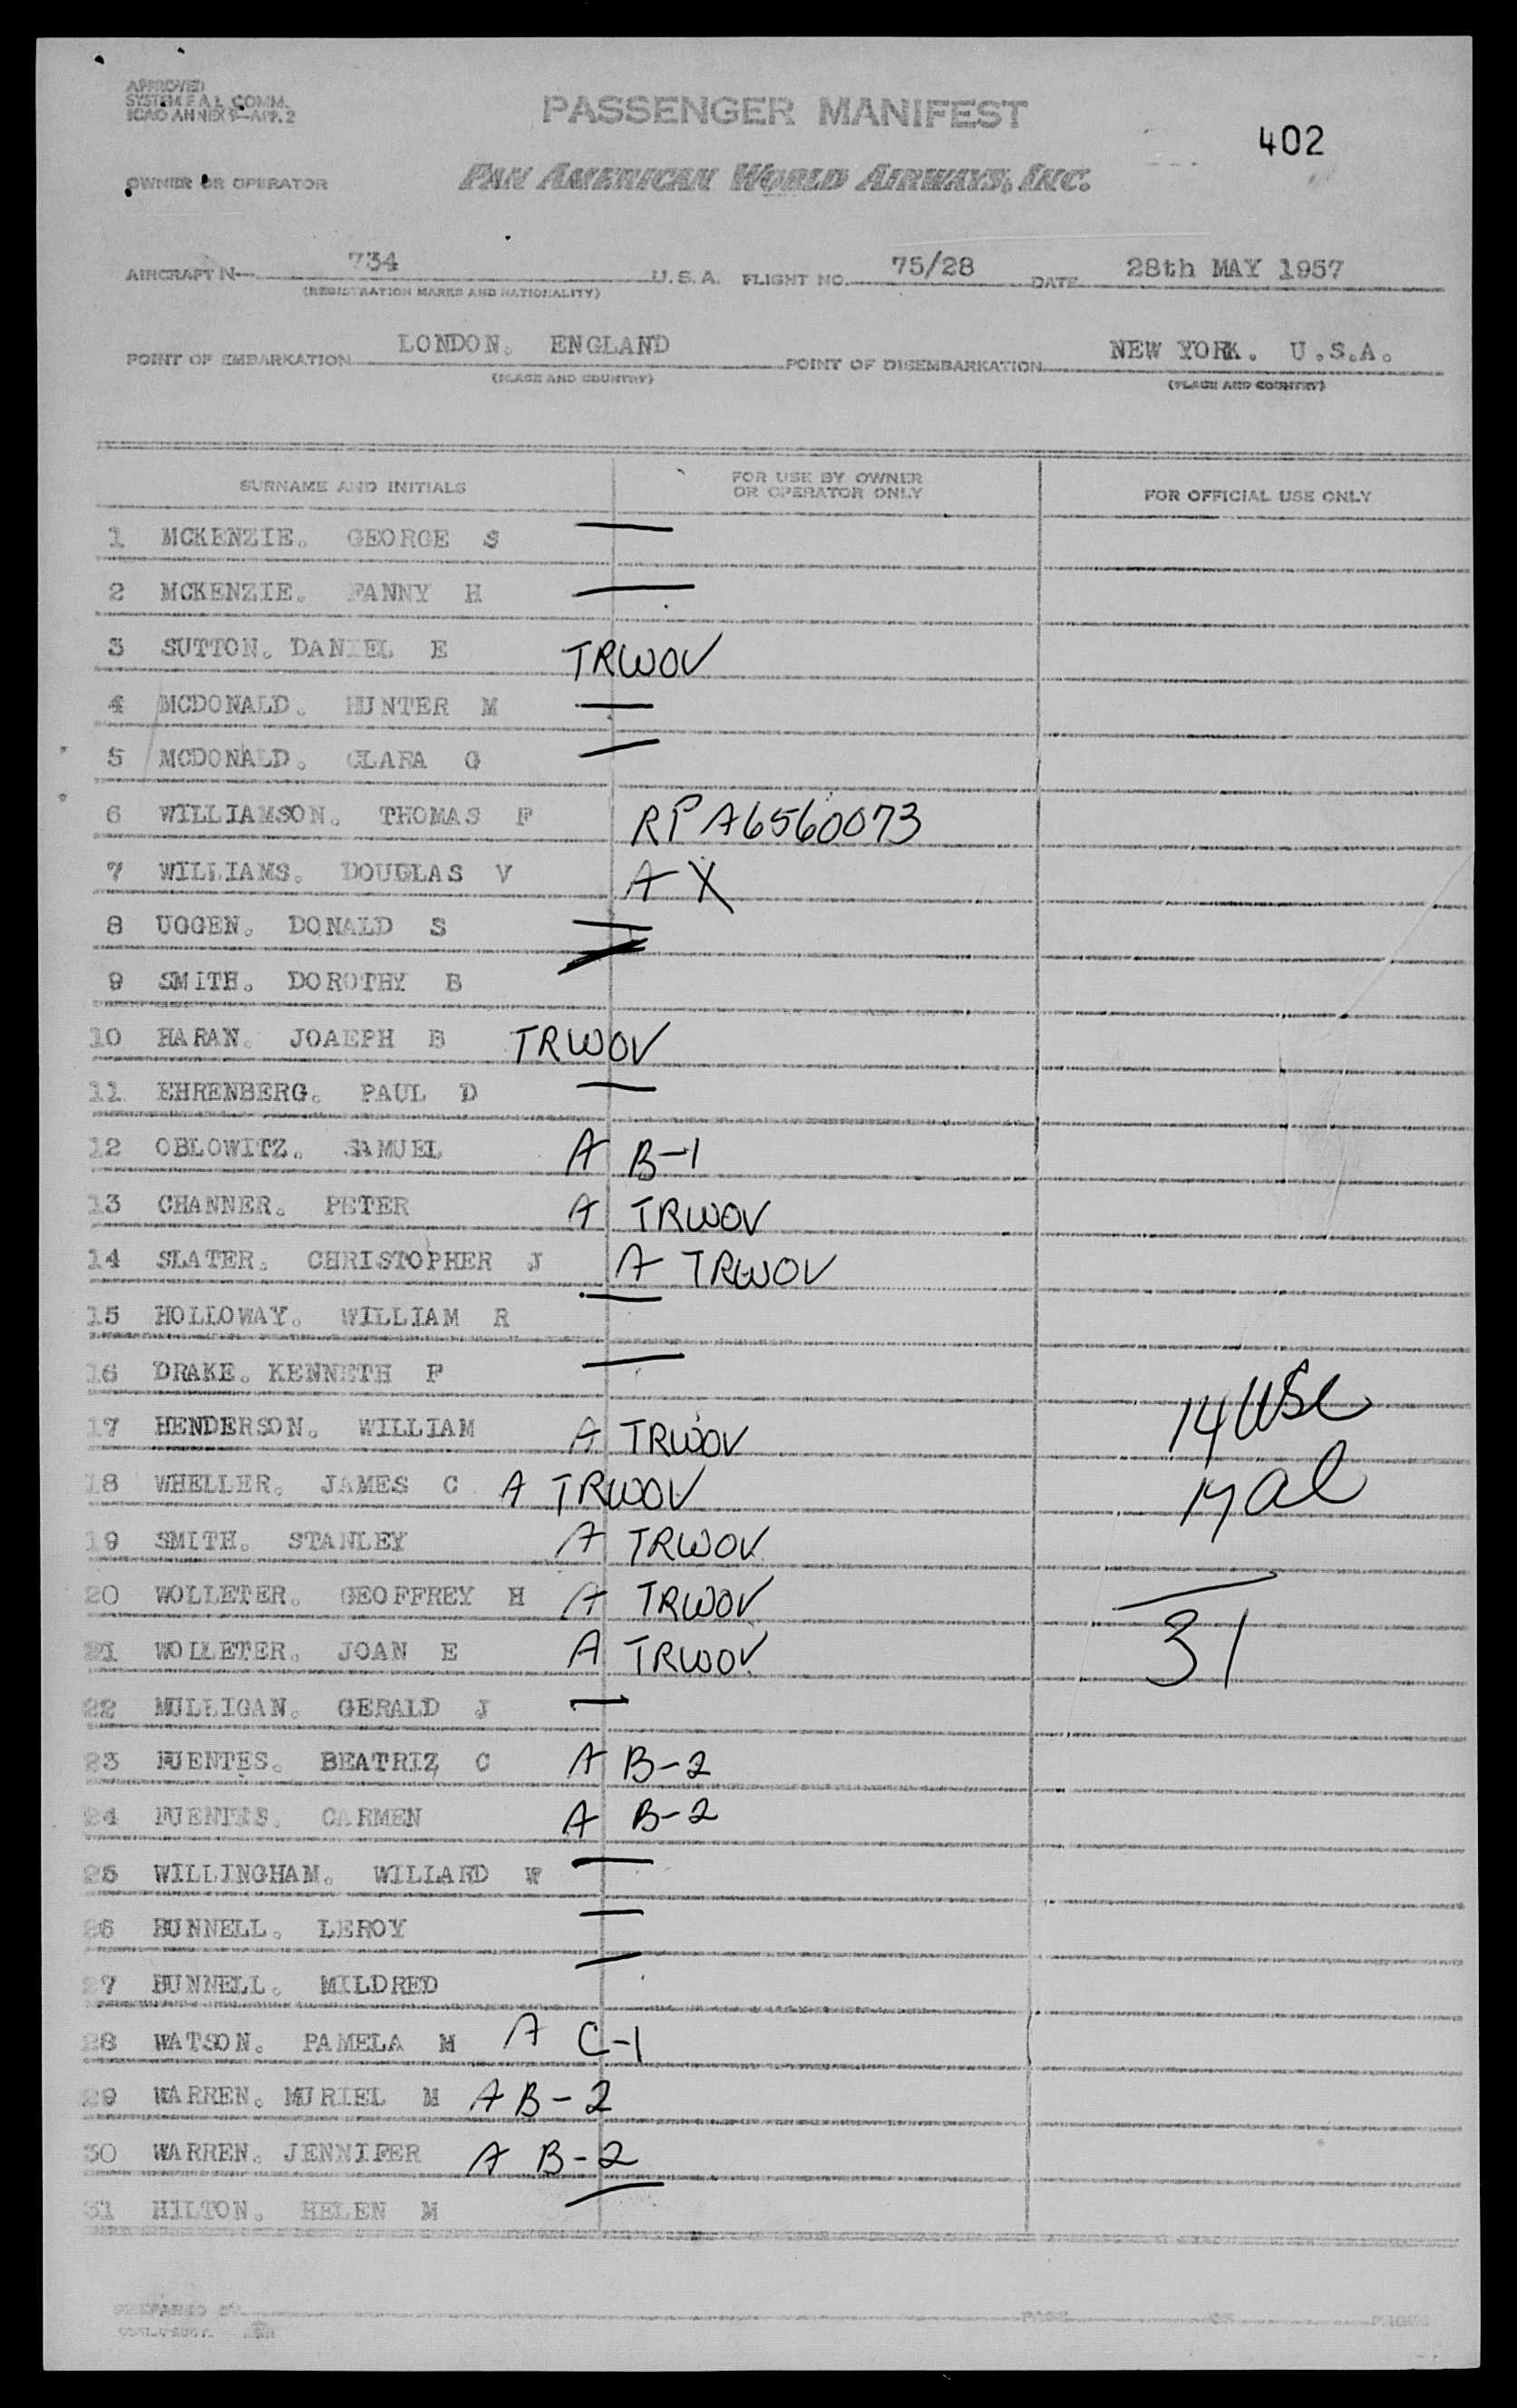 APPROVED
SYSTEM F.A.L. COMM.
ICAO ANNEX 9—APP. 2
PASSENGER MANIFEST
402
OWNER OR OPERATOR
PAN AMERICAN WORLD AIRWAYS, INC.
AIRCRAFT N— 734 U.S.A. FLIGHT NO. 75/28 DATE 28th MAY 1957
(REGISTRATION MARKS AND NATIONALITY)
POINT OF EMBARKATION LONDON. ENGLAND POINT OF DISEMBARKATION NEW YORK. U.S.A.
(PLACE AND COUNTRY) (PLACE AND COUNTRY)
SURNAME AND INITIALS FOR USE BY OWNER OR OPERATOR ONLY FOR OFFICIAL USE ONLY
1 MCKENZIE. GEORGE S —
2 MCKENZIE. FANNY H —
3 SUTTON. DANIEL E TRWOV
4 MCDONALD. HUNTER M —
5 MCDONALD. CLARA G —
6 WILLIAMSON. THOMAS F RP A6560073
7 WILLIAMS. DOUGLAS V A X
8 UGGEN. DONALD S —
9 SMITH. DOROTHY B —
10 HARAN. JOAEPH B TRWOV
11 EHRENBERG. PAUL D —
12 OBLOWITZ. SAMUEL A B-1
13 CHANNER. PETER A TRWOV
14 SLATER. CHRISTOPHER J A TRWOV
15 HOLLOWAY. WILLIAM R —
16 DRAKE. KENNETH F —
17 HENDERSON. WILLIAM A TRWOV 14 USC
18 WHELLER. JAMES C A TRWOV 17 al
19 SMITH. STANLEY A TRWOV
20 WOLLETER. GEOFFREY H A TRWOV
21 WOLLETER. JOAN E A TRWOV 31
22 MULLIGAN. GERALD J —
23 FUENTES. BEATRIZ C A B-2
24 FUENTES. CARMEN A B-2
25 WILLINGHAM. WILLARD W —
26 BUNNELL. LEROY —
27 BUNNELL. MILDRED —
28 WATSON. PAMELA M A C-1
29 WARREN. MURIEL M A B-2
30 WARREN. JENNIFER A B-2
31 HILTON. HELEN M —
PREPARED BY PAGE OF PAGES